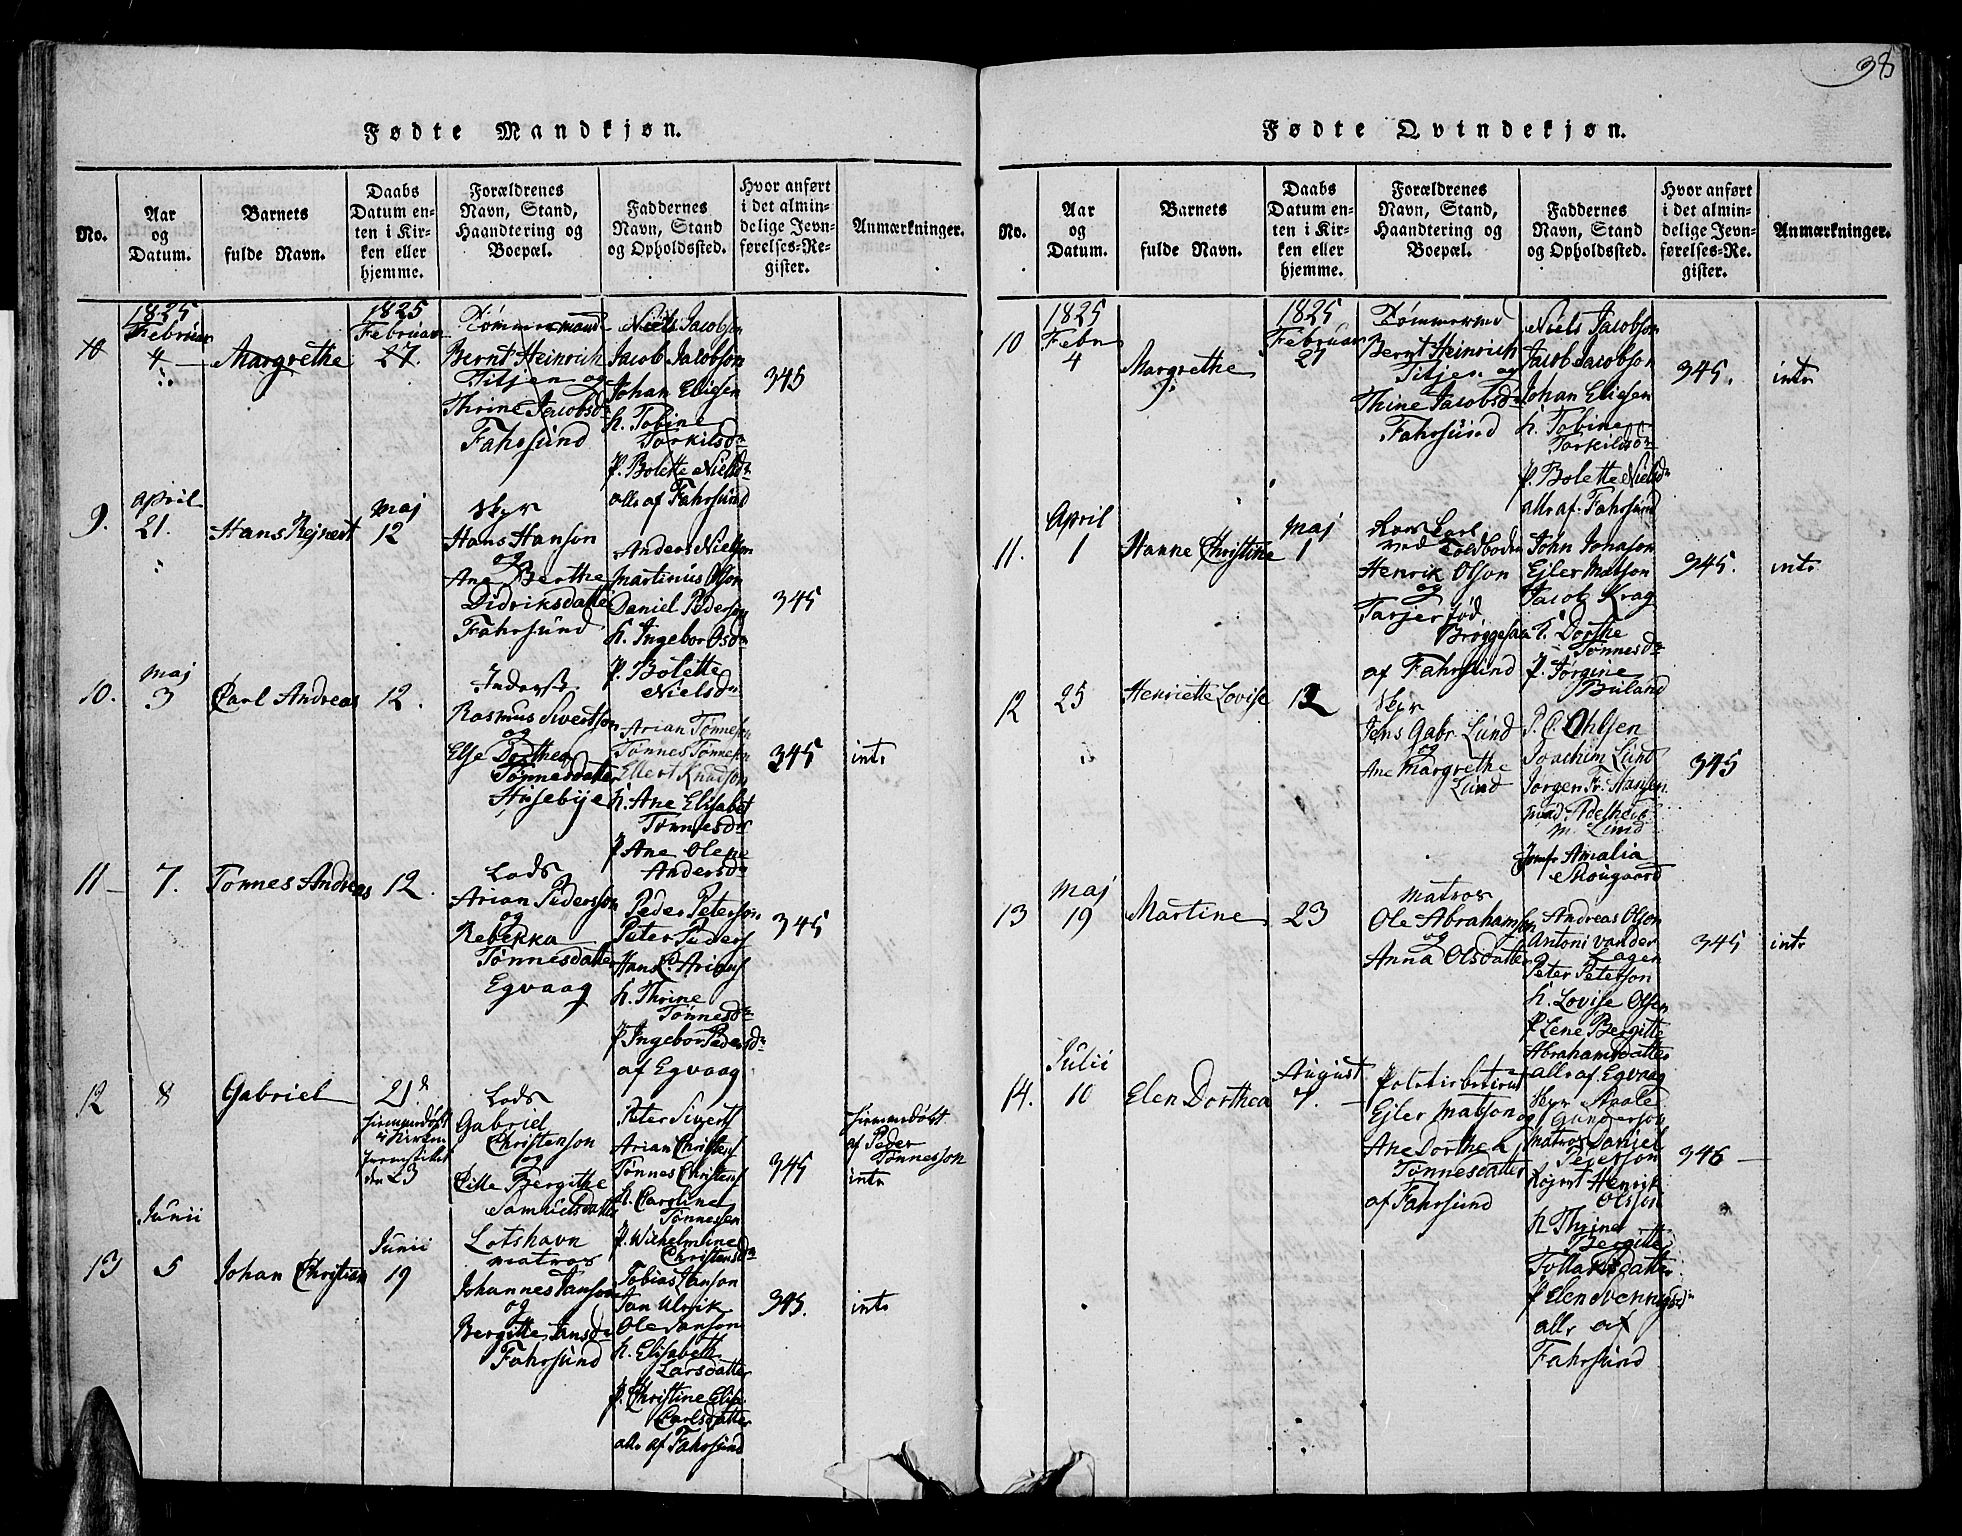 38
Fødte Mandkjøn.
No.
Aar
og
Datum.
Barnets
fulde Navn.
Daabs
Datum en-
ten i Kir-
ken eller
hjemme.
Forældrenes
Navn, Stand,
Haandtering og
Boepæl.
Faddernes
Navn, Stand
og Opholdssted.
Hvor anført
i det almin-
delige Jevn-
førelses-Re-
gister.
Anmærkninger.
10
1825
Februar
4
Margrethe
1825
Februar
27.
Tømmermand
Bernt Heinrich
Titjen og
Thrine Jacobsd
Fahrsund
Niels Jacobson
Jacob Jacobson
Johan Eliesen
h. Tobine
Torkilsd
P. Bolette Nielsd
alle af Fahrsund
345
9.
April
21.
Hans Rejnert
Maj
12
Hans Hanson
og
Ane Berthe
Didriksdatter
Fahrsund
Anders Nielson
Martinus Olson
Daniel Pederson
h. Ingebor Osd
P. Bolette
Nielsd
345
10.
Maj
3
Carl Andreas
12.
Inderst
Rasmus Sivertson
og
Else Dorthea
Tønnesdatter
Husebye
Arian Tønneson
Tønnes Tønneson
Ellert Knudson
h. Ane Elisabet
Tønnesd
P Ane Olene
Andersd
345
intr
11
7.
Tønnes Andreas
12.
Lods
Arian Pederson
og
Rebekka
Tønnesdatter
Egvaag
Peder Peterson
Peter Peders
Hans C. Arians
h. Thrine
Tønnesd
P Ingebor Pedersd
af Egvaag
345
12
8
Gabriel
21d
hjemmedøbt
i Kirken
fremstillet
den 23
Lods
Gabriel
Christenson
og
Cille Bergithe
Samuelsdatter
Lotshavn
Peter Sivers
Arian Christens
Tønnes Christens
h. Caroline
Tønnessen
P. Wilhelmine
Christensd
345
hjemmedøbt
af Peder
Tønnesson
intr
13
Junii
5
Johan Christian
Junii
19
matros
Johannes Janson
og
Bergitte Jansd
Fahrsund
Tobias Janson
Jan Ulrik
Ole Janson
h. Elisabeth
Larsdatter
P. Christine Elise
Carlsdatter
alle af Fahrsund
345.
intr
Fødte Qvindekjøn.
No.
Aar
og
Datum.
Barnets
fulde Navn.
Daabs
Datum en-
ten i Kir-
ken eller
hjemme.
Forældrenes
Navn, Stand,
Haandtering og
Boepæl.
Faddernes
Navn, Stand
og Opholdssted.
Hvor anført
i det almin-
delige Jevn-
førelses-Re-
gister.
Anmærkninger.
10
1825
Febr
4
Margrethe
1825
Februar
27
Tømmermd
Bernt Heinrich
Titjen og
Thine Jacobsd
Fahrsund
Niels Jacobson
Jacob Jacobson
Johan Eliesen
h. Tobine
Torkildsd
P. Bolette Nielsd
alle af Fahrsund
345.
intr
11.
April
1
Hanne Christine
Maj
1
ved Toldboden
Henrik Olson
og
Tarjer
af Fahrsund
John Jonason
Ejler Matson
Jacob Krag
h. Dorthe
Tønnesd
P. Jørgine
Buland
345.
intr
12
25
Henriette Lovise
12
Jens Gabr Lund
og
Ane Margrethe
Lund
P. C. Ohlsen
Joachim Lund
Jørgen Fr. Hansen
mad Adelheit
M. Lund
Jomfr Amalia
Skougaard
345
13
Maj
19
Martine
23
Matros
Ole Abrahamson
og
Anna Olsdatter
Andreas Olson
Antoni vander
Lagen
Peter Peterson
h. Lovise Olsen
P Lene Bergitte
Abrahamsdatter
alle af Egvaag
345
intr
14.
Julii
10
Elen Dorthea
August
7.
Ejler Matson og
Ane Dorthea
Tønnesdatter
af Fahrsund
Gunderson
Matros Daniel
Pederson
Rejert Henrik
Olsson
h Thrine
Bergitte
Tollaksdatter
P Elen Svennigsd
alle af
Fahrsund
346